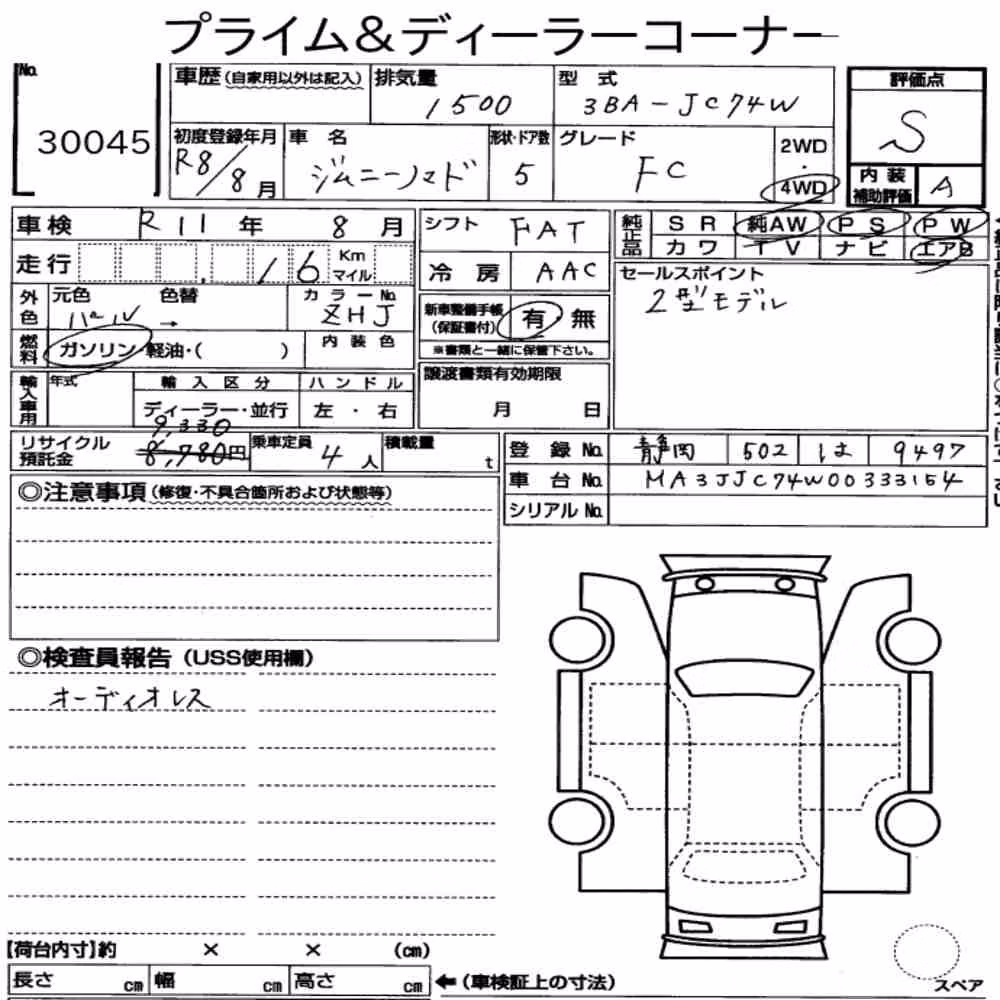 プライム＆ディーラーコーナー
No. 30045
車歴 (自家用以外は記入)
排気量 1500
型式 3BA-JC74W
評価点 S
初度登録年月 R8/8月
車名 ジムニーノマド
形状・ドア数 5
グレード FC
2WD・4WD
内装補助評価 A
車検 R11年 8月
走行 16 Km マイル
外色 元色 パール 色替 →
カラーNo. ZHJ
燃料 ガソリン・軽油・( )
内装色
輸入車用 年式
輸入区分 ディーラー・並行
ハンドル 左・右
シフト FAT
冷房 AAC
新車整備手帳(保証書付) 有・無
※書類と一緒に保管下さい。
譲渡書類有効期限
月 日
純正品 SR 純AW PS PW
カワ TV ナビ エアB
セールスポイント
2型モデル
リサイクル預託金 9,330 8,780円
乗車定員 4人
積載量 t
登録No. 静岡 502 は 9497
車台No. MA3JJC74W00333154
シリアルNo.
◎注意事項 (修復・不具合箇所および状態等)
◎検査員報告 (USS使用欄)
オーディオレス
【荷台内寸】約 × × (cm)
長さ cm 幅 cm 高さ cm ←(車検証上の寸法)
スペア